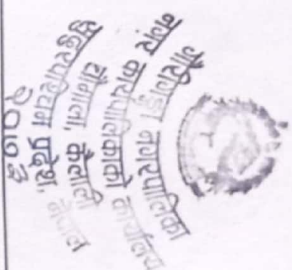 गोरीगङ्गा नगरपालिका
नगर कार्यपालिकाको कार्यालय
चौमाला, कैलाली
सुदूरपश्चिम प्रदेश, नेपाल
२०७३